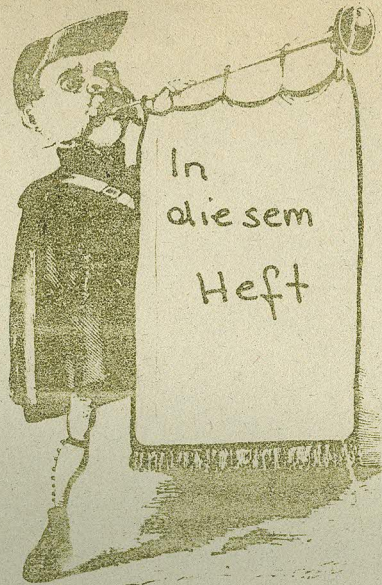 In
diesem
Heft